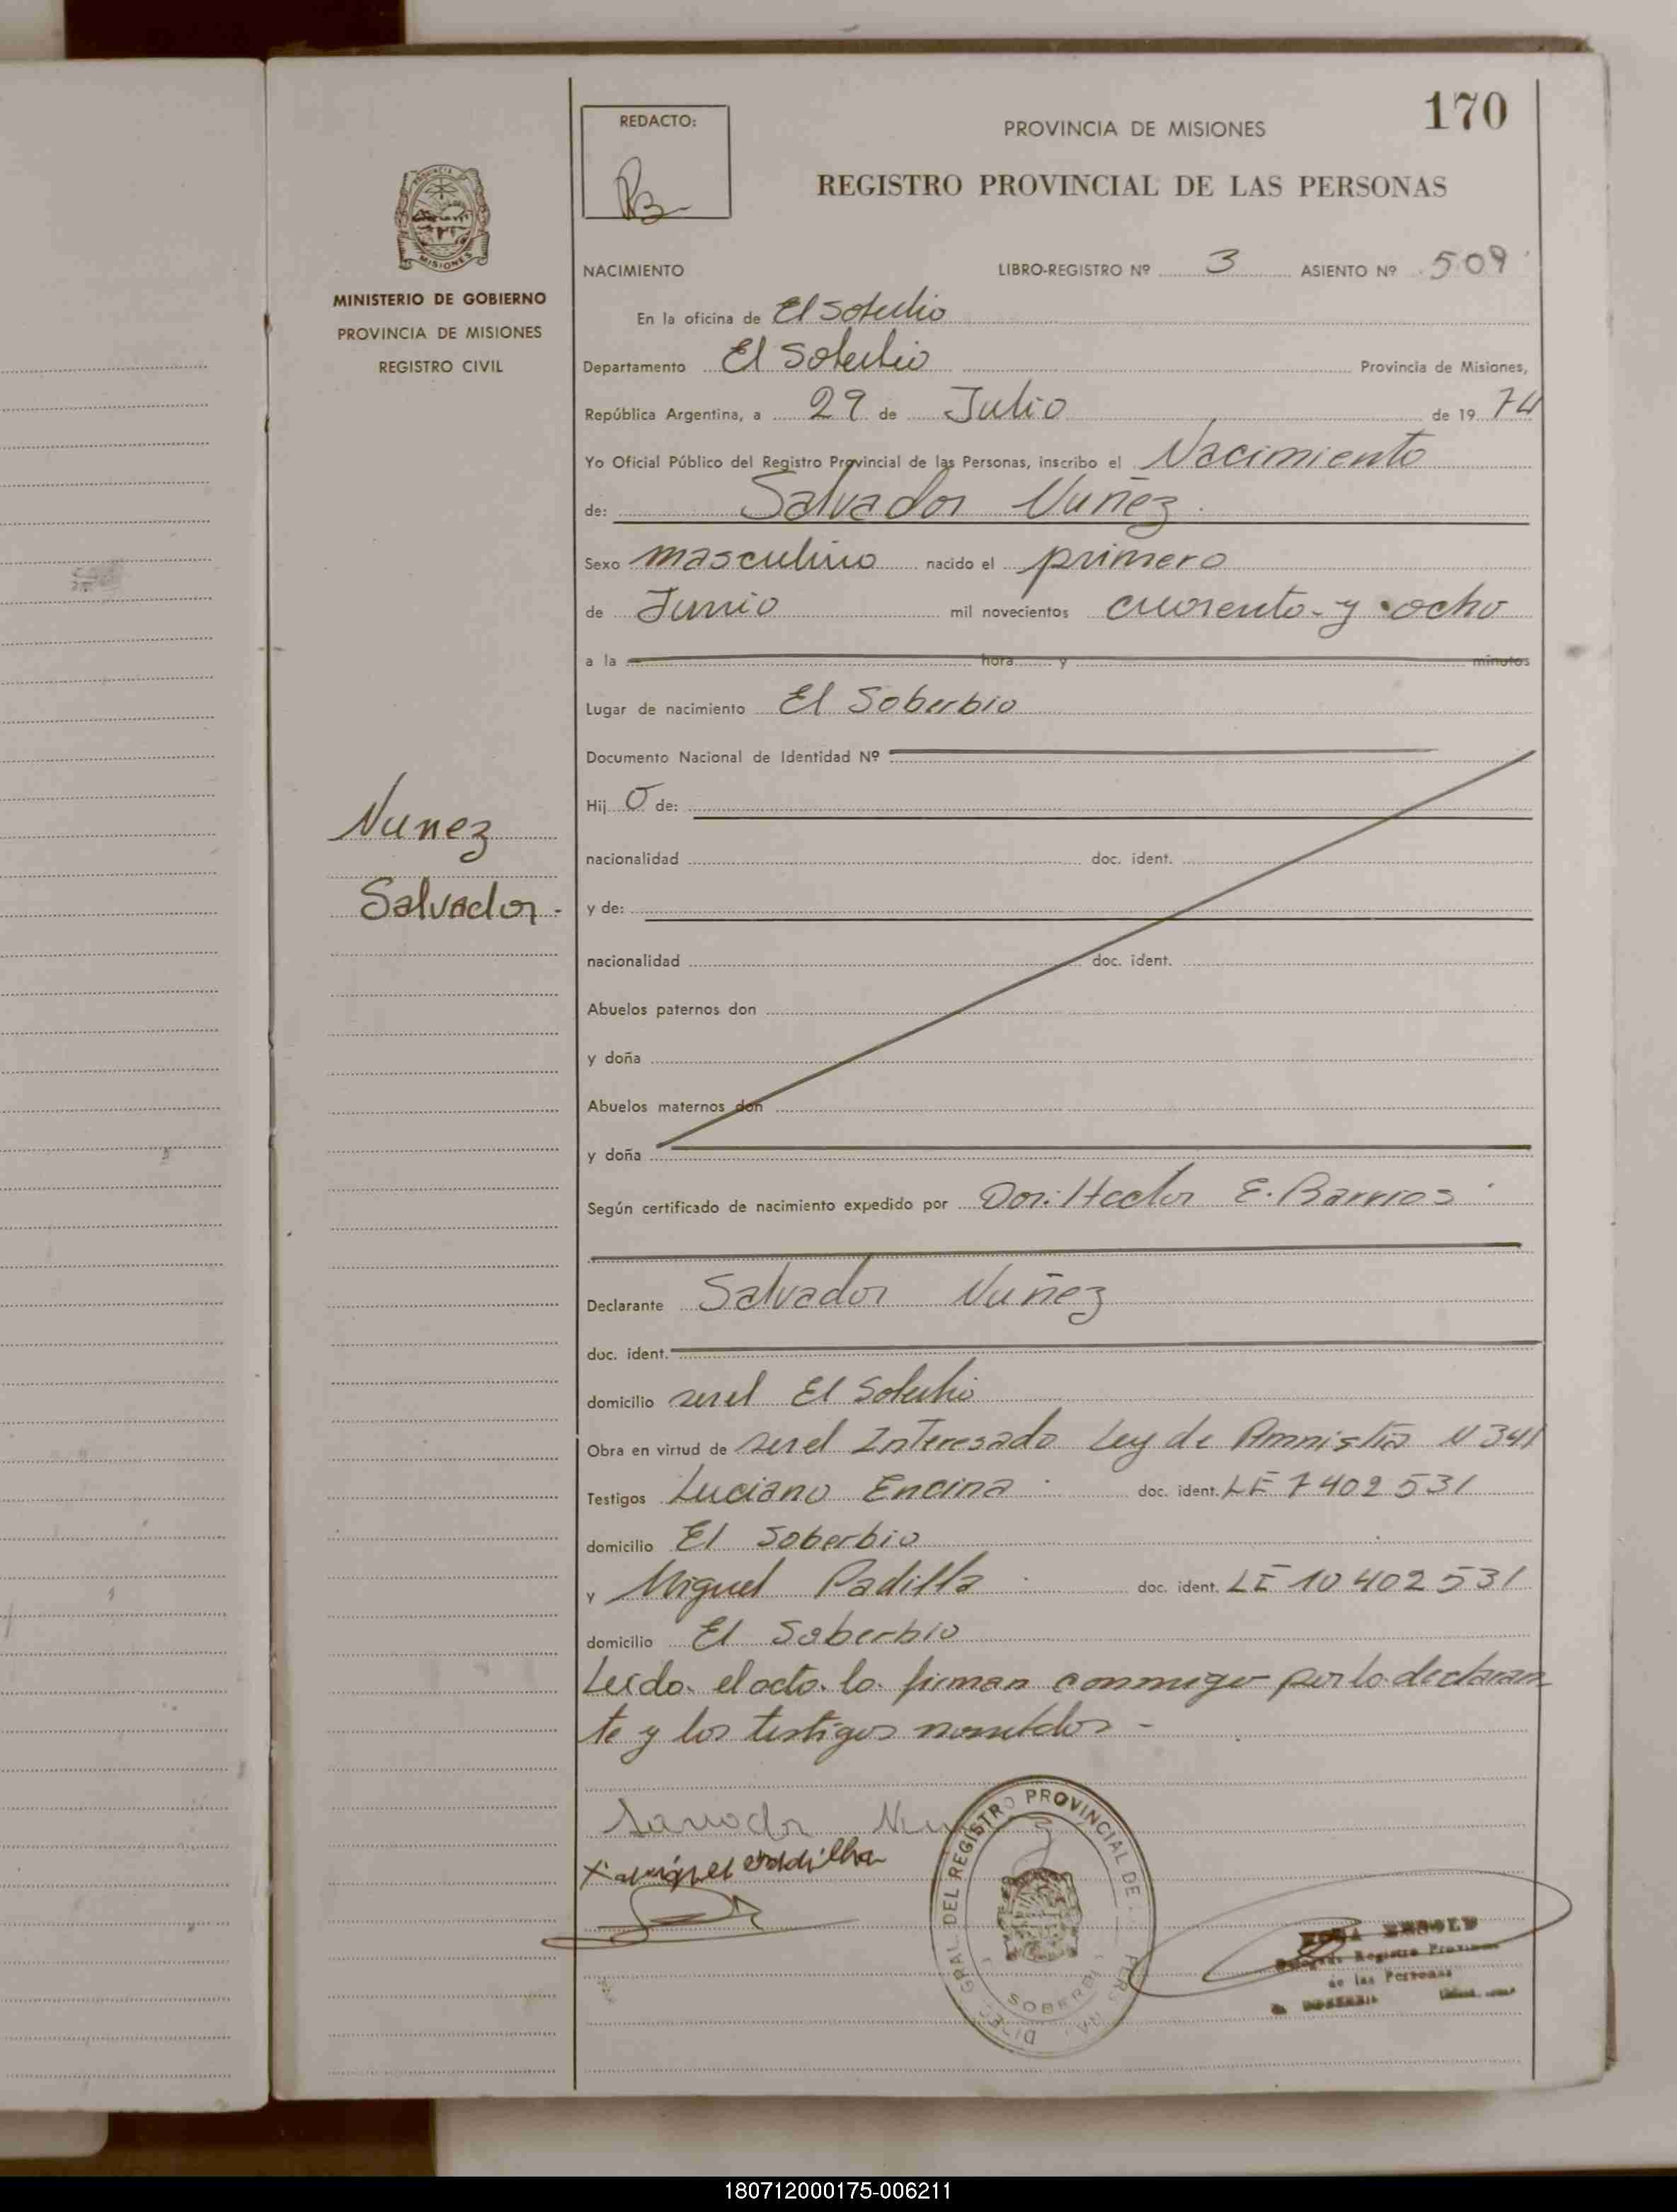 170
REDACTO:
PROVINCIA DE MISIONES
REGISTRO PROVINCIAL DE LAS PERSONAS
MISIONES
MINISTERIO DE GOBIERNO
PROVINCIA DE MISIONES
REGISTRO CIVIL
Nunez
Salvador.-
NACIMIENTO LIBRO-REGISTRO Nº 3 ASIENTO Nº 509
En la oficina de El Soberbio
Departamento El Soberbio Provincia de Misiones,
República Argentina, a 29 de Julio de 19 74
Yo Oficial Público del Registro Provincial de las Personas, inscribo el Nacimiento
de: Salvador Nuñez.
Sexo masculino nacido el primero
de Junio mil novecientos cuarenta y ocho
a la hora y minutos
Lugar de nacimiento El Soberbio
Documento Nacional de Identidad Nº
Hij o de:
nacionalidad doc. ident.
y de:
nacionalidad doc. ident.
Abuelos paternos don
y doña
Abuelos maternos don
y doña
Según certificado de nacimiento expedido por Dor. Hector E. Barrios
Declarante Salvador Nuñez
doc. ident.
domicilio en el El Soberbio
Obra en virtud de ser el Interesado Ley de Amnistia N 341
Testigos Luciano Encina doc. ident. LE 7402531
domicilio El Soberbio
y Miguel Padilla doc. ident. LE 10402531
domicilio El Soberbio
Leido el acta la firman conmigo por lo declaran
te y los testigos nombrados -
REGISTRO PROVINCIAL DE
SOBERBI
Registro
de las Personas
180712000175-006211